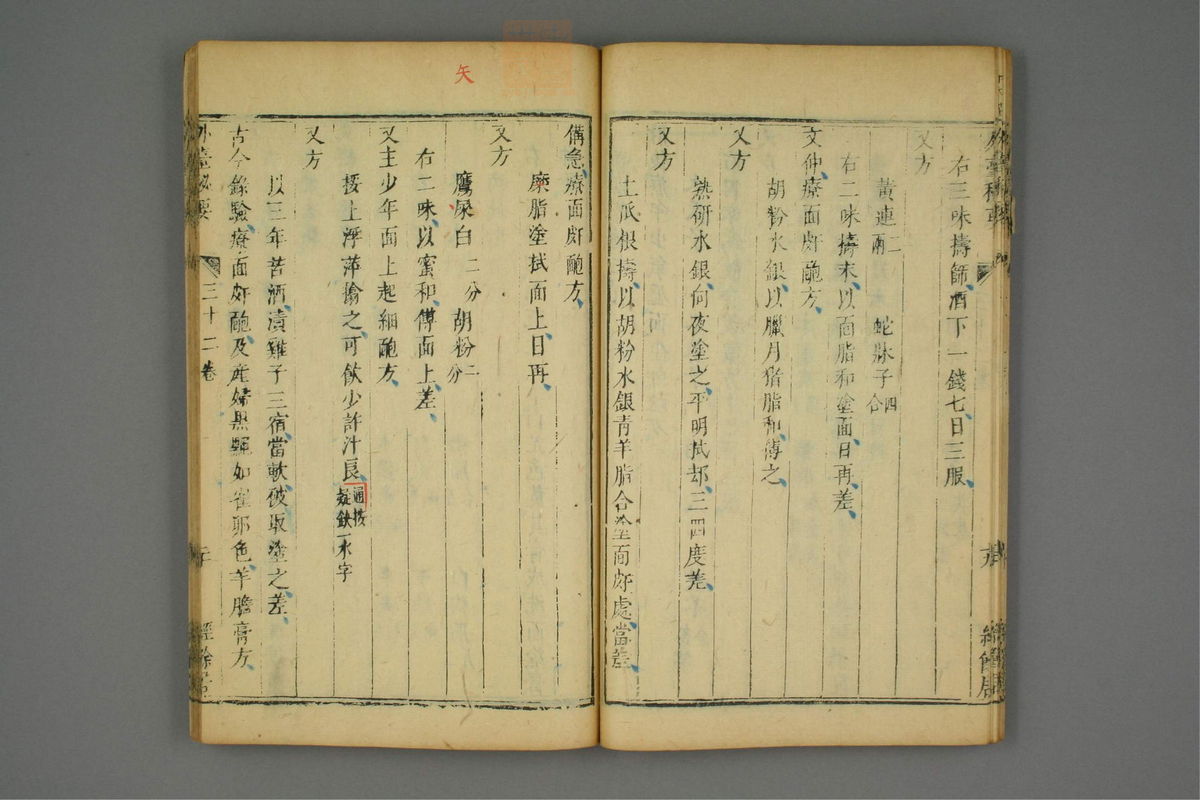 右三味擣篩酒下一錢七日三服
又方
黃連二兩 蛇牀子四合
右二味擣末以面脂和塗面日再差
文仲療面皯䵟方
胡粉水銀以臘月猪脂和傅之
又方
熟研水銀向夜塗之平明拭却三四度差
又方
土瓜根擣以胡粉水銀青羊脂合塗面皯處當差
備急療面皯䵟方
糜脂塗拭面上日再
又方
鷹屎白二分胡粉二分
右二味以蜜和傅面上差
又主少年面上起細䵟方
挼上浮萍搶之可飲少許汁良一通挼疑鈌一水字
又方
以三年苦酒漬雞子三宿當軟破取塗之差
古今錄驗療面皯䵟及産婦黑䵟如雀卵色羊膽膏方
外臺秘要 三十二卷 經餘居
矢